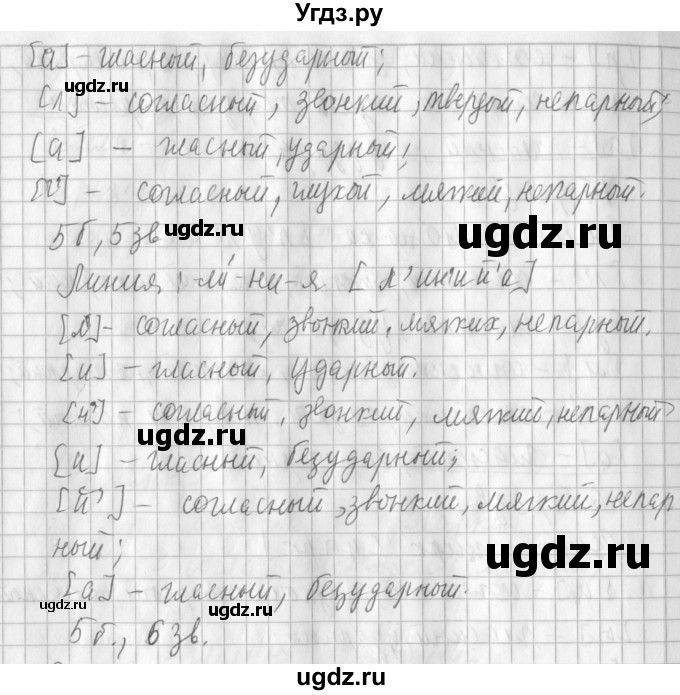 Угдз.ру
[а] – гласный, безударный;
[л] – согласный, звонкий, твердый, непарный;
[а] – гласный, ударный;
– согласный, глухой, мягкий, непарный.
5 б, 5 зв
Линия: ли́-ни-я [л'ин'ий'а]
[л] – согласный, звонкий, мягких, непарный.
[и] – гласный, ударный.
[н'] – согласный, звонкий, мягкий, непарный
[и] – гласный, безударный;
[й'] – согласный, звонкий, мягкий, непар
ный;
[а] – гласный, безударный.
5 б., 6 зв.
ugdz.ru
ugdz.ru
ugdz.ru
ugdz.ru
ugdz.ru
ugdz.ru
ugdz.ru
ugdz.ru
ugdz.ru
ugdz.ru
ugdz.ru